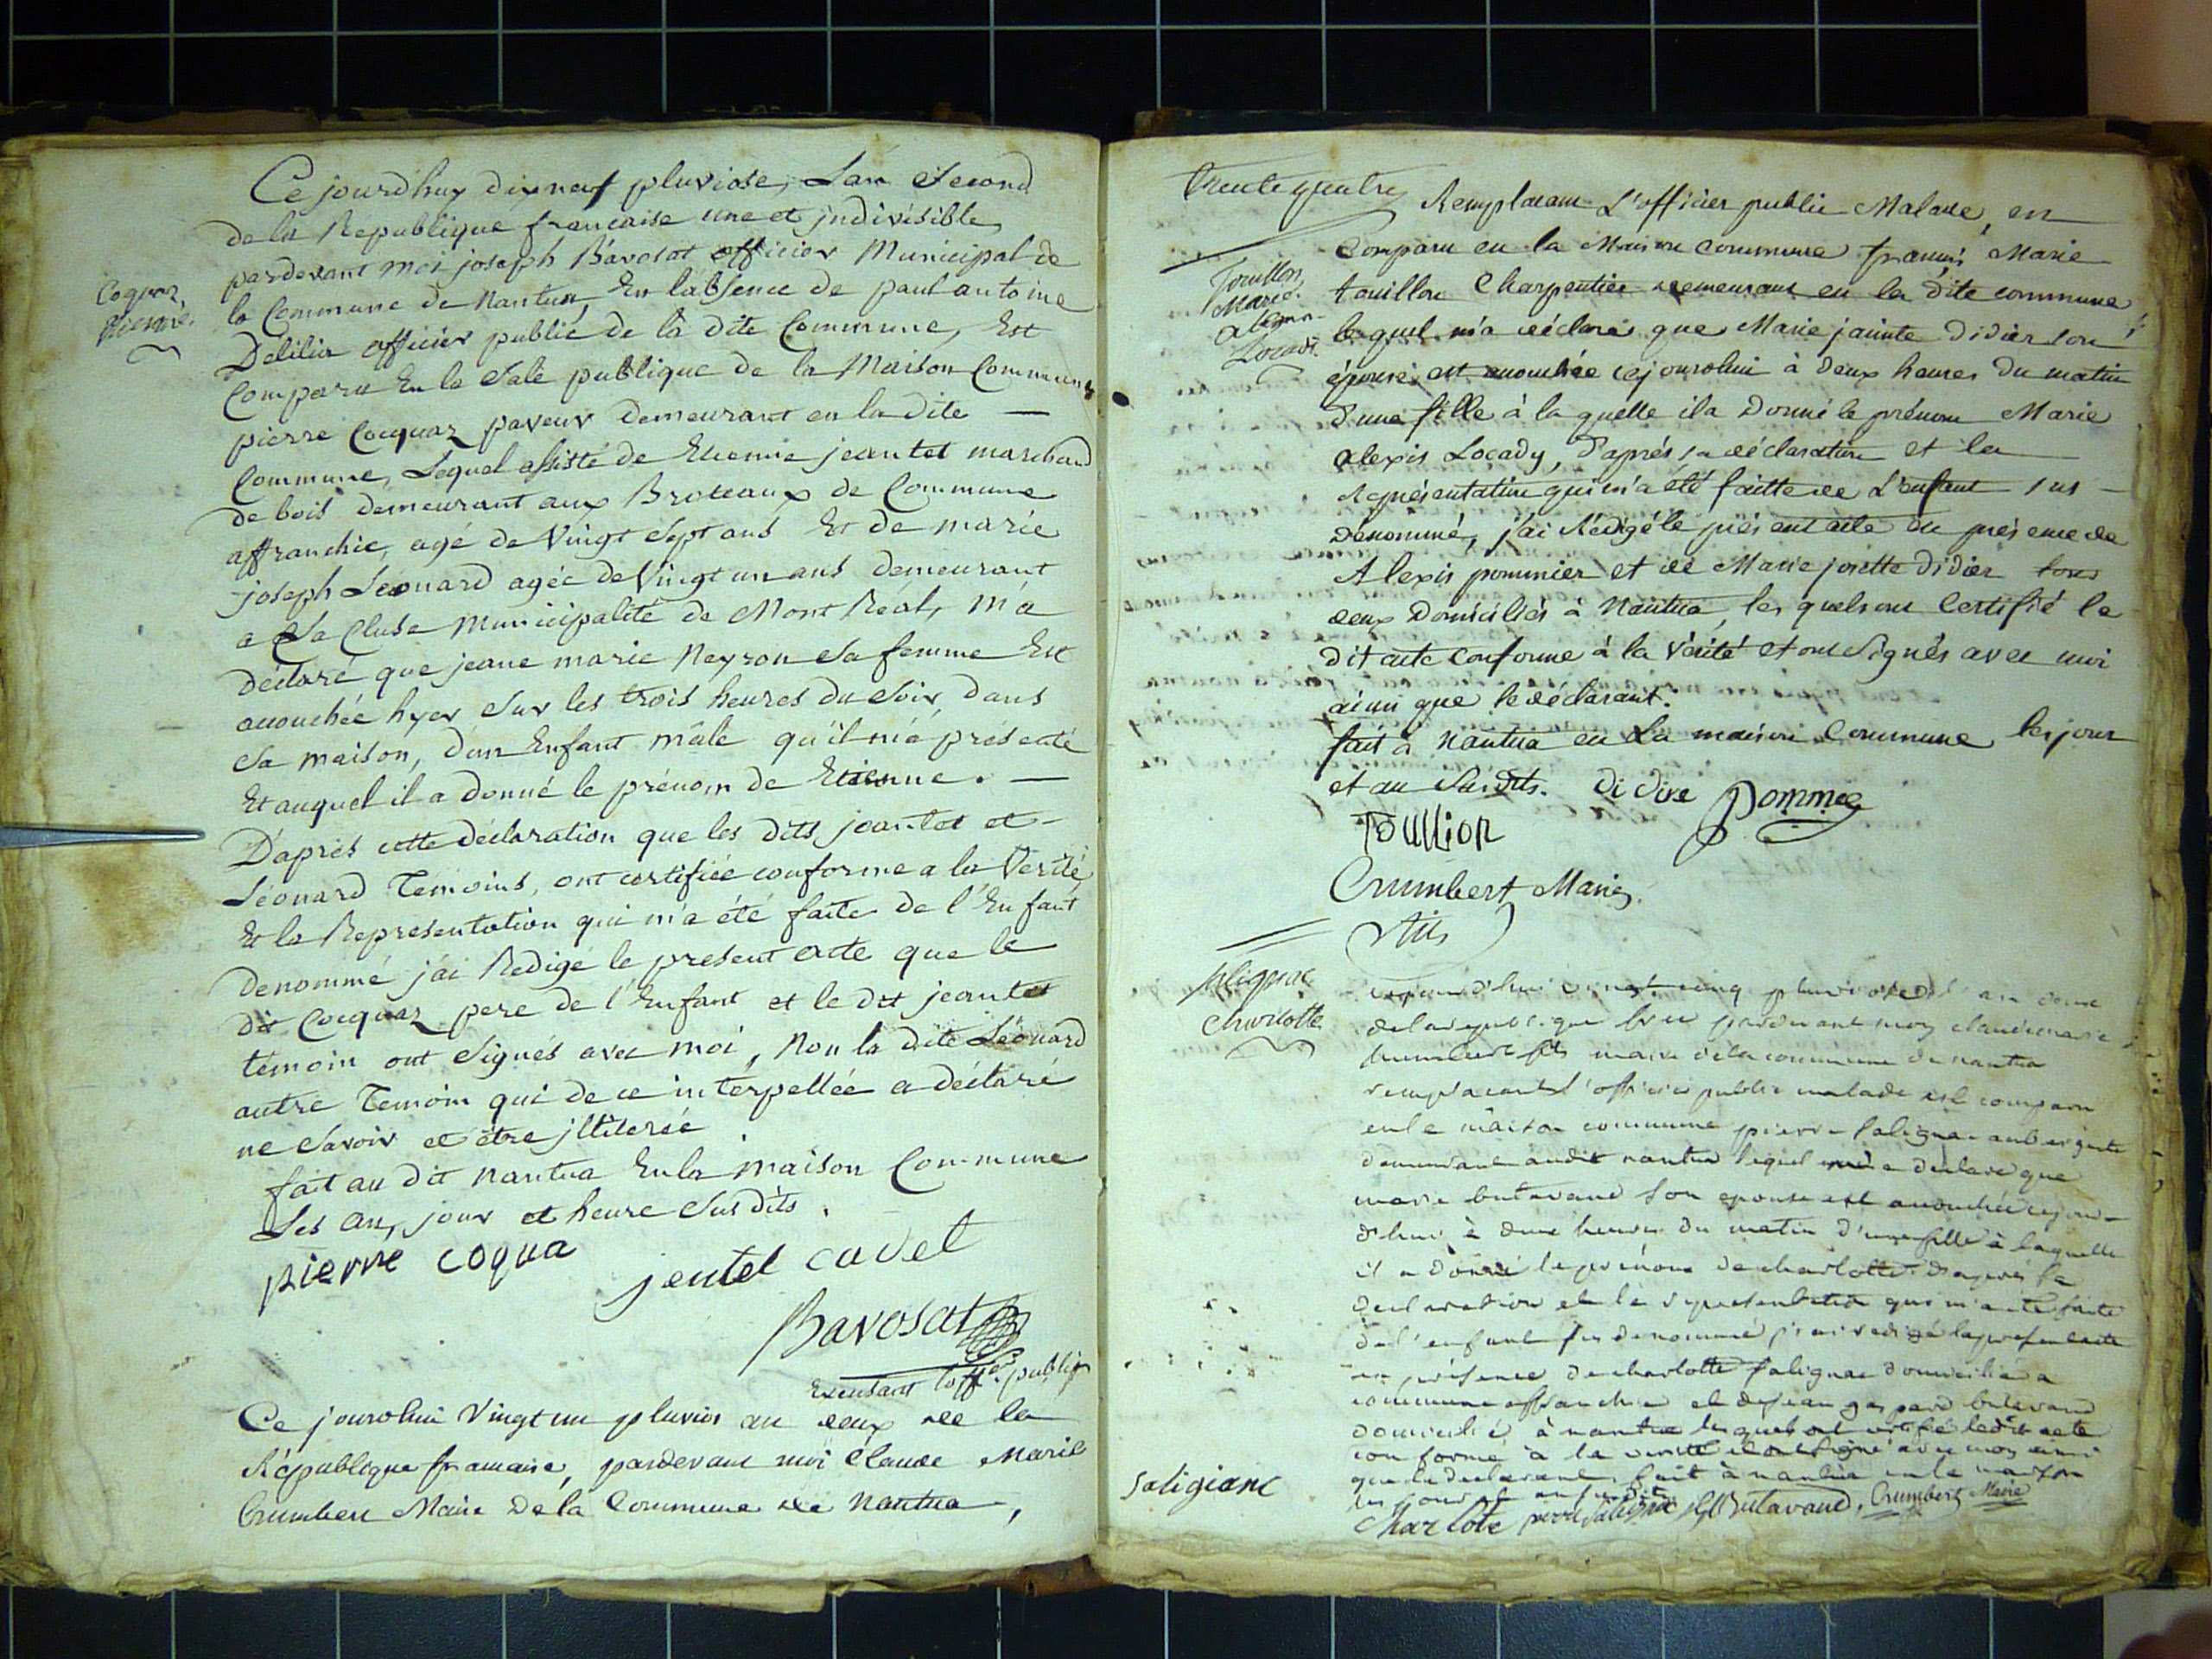 Ce jourd'huy dixneuf pluviose, L'an Second
de la Republique francaise une et jndivisible
pardevant moi joseph Bavosat officier Municipal de
la Commune de Nantua, En l'absence de paul antoine
Delilia officier public de la dite Commune, Est
Comparu En la Sale publique de la Maison Commune
Coquaz
Etienne.
pierre Cocquaz paveur demeurant en la dite —
Commune, Lequel assisté de Etienne jeantet marchand
de bois demeurant aux Broteaux de Commune
affranchie, agé de Vingt Sept ans Et de marie
joseph Léonard agée de Vingt un ans demeurant
a La Cluse Municipalité de Mont Réal, m'a
déclaré que jeane marie Neyron Sa femme Est
accouchée hyer Sur les trois heures du Soir, dans
Sa maison, d'un Enfant mâle qu'il m'a présenté
Et auquel il a donné le prénom de Etienne. —
D'après cette déclaration que les dits jeantet et —
Léonard Témoins, ont certifiée conforme a la Verité
Et la Representation qui m'a été faite de l'Enfant
denommé j'ai Redigé le present acte que le
dit Cocquaz pere de l'Enfant et le dit jeantet
témoin ont Signés avec moi, Non la dite Léonard
autre Temoin qui de ce interpellée a déclaré
ne Savoir et être jlliterée
fait au dit Nantua En la Maison Commune
Les an, jour et heure Susdits.
pierre coqua
jentet cadet
Bavosat
Exerçant l'offer public
Ce jourdhui Vingt un pluvios an deux de la
République francaise, pardevant moi Claude Marie
Crumbert Maire De la Commune de Nantua,
Trente quatre
Remplacant L'officier public Malade, en
Comparu en la Maison commune francois Marie
Touillon
Marie.
Alexis
Locadi.
touillon Charpentier demeurant en la dite commune
lequel m'a déclaré que Marie jacinte Didier son
épouse, est accouchée cejourdhui à deux heures du matin
d'une fille à la quelle il a Donné le prénom Marie
alexis Locady, D'après sa déclaration et la
Représentation qui m'a été faitte de L'enfant sus —
dénommé, j'ai Rédigé le présent acte en présence de
Alexis pommier et de Marie josette Didier tous
deux Domiciliés à Nantua, les quels ont Certifié le
dit acte conforme à la Vérité et ont Signés avec moi
ainsi que le déclarant.
fait à Nantua en La maison Commune les jour
et an Susdits. Didire Pommie
Toullion
Crumbert Marie
fils
Salignac
Charlotte
cejourd'hui vingt cinq pluviose l'an deux
de la republique pardevant moy claude marie
humbert fils maire de la commune de nantua
remplacant l'officier public malade est comparu
en la maison commune pierre salignac aubergiste
demeurant audit nantua lequel m'a déclaré que
marie butavand son epouse est accouchée cejour-
d'hui à deux heures du matin d'une fille à laquelle
il a donné le prénom de charlotte d'après sa
declaration et la representation qui m'a été faite
de l'enfant sus denommé j'ai redigé le present acte
en présence de charlotte salignac domiciliée a
commune affranchie et de jean gaspard butavand
domicilié à nantua lesquels ont certifié ledit acte
conforme à la verité et ont signé avec moy ainsi
que le declarant. fait à nantua en la maison
les jour et an susdits
Saligianc
Charlote pierre Salignac JG Butavand, Crumbert Maire